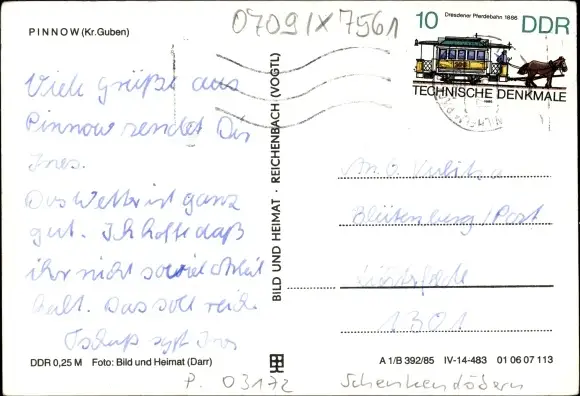 PINNOW (Kr. Guben)
0709/X7561
10 Dresdener Pferdebahn 1886 DDR
TECHNISCHE DENKMALE
Viele Grüße aus
Pinnow sendet Dir
Ines.
Das Wetter ist ganz
gut. Ich hoffe daß
ihr nicht soviel Arbeit
habt. Das soll reichen
Tschüß sagt Ines
BILD UND HEIMAT · REICHENBACH (VOGTL)
An
/Post
1301
DDR 0,25 M Foto: Bild und Heimat (Darr)
A 1/B 392/85 IV-14-483 01 06 07 113
P. 03172 Schenkendöbern